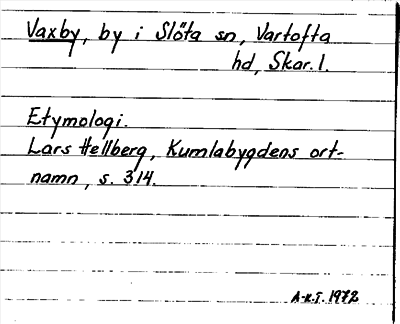 Vaxby, by i Slöta sn, Vartofta
hd, Skar. l.
Etymologi.
Lars Hellberg, Kumlabygdens ort-
namn, s. 314.
A-K.T. 1972